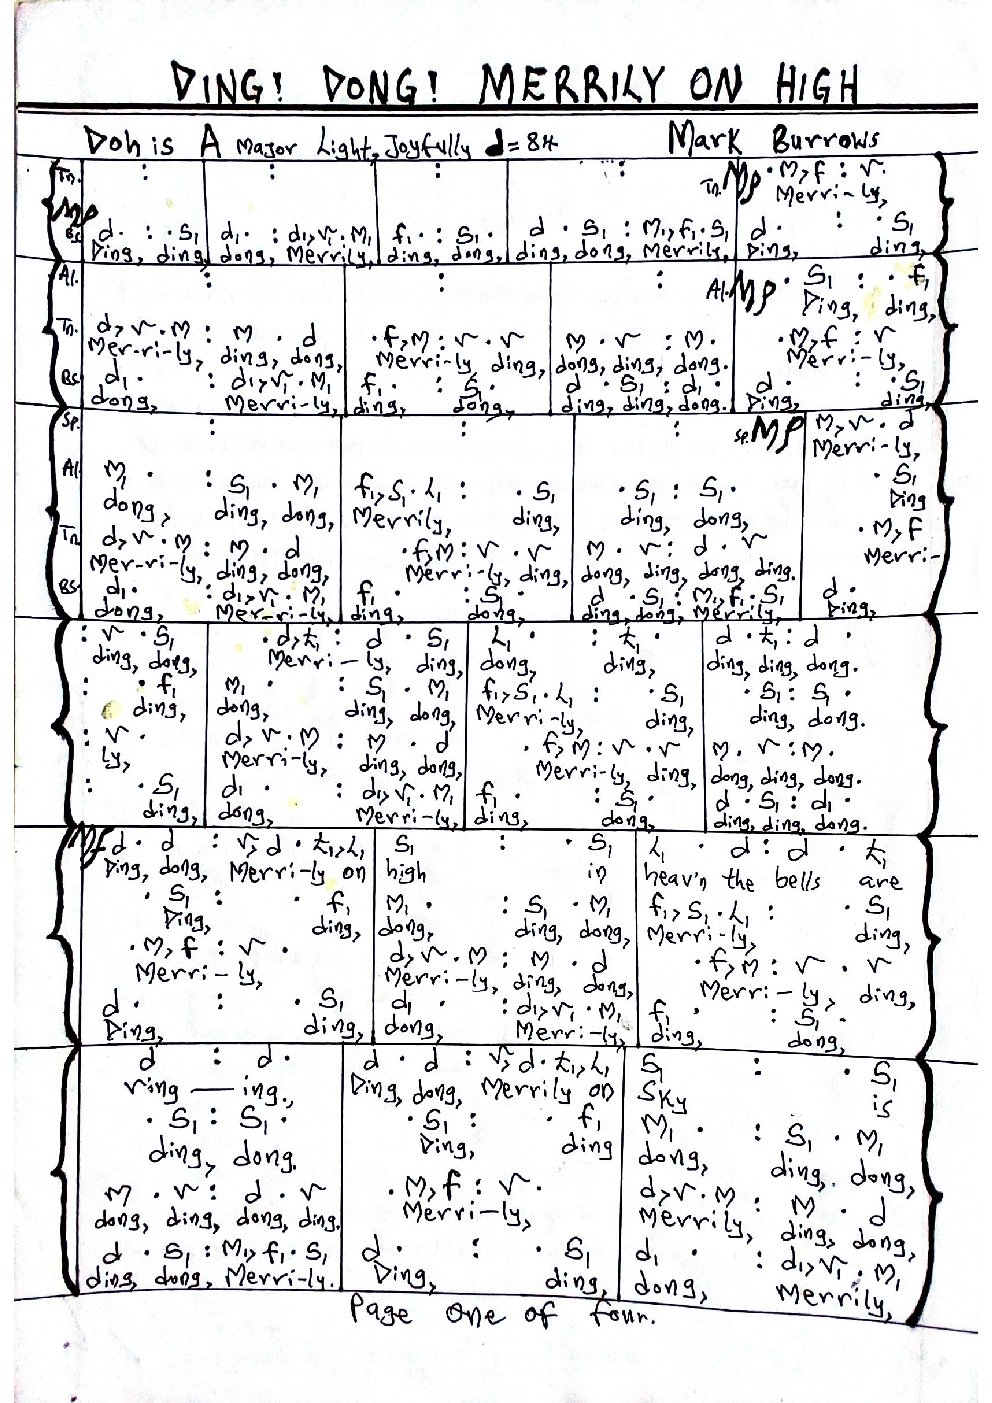 DING! DONG! MERRILY ON HIGH
Doh is A Major Light, Joyfully d=84 Mark Burrows
Tn. : : : : Tn. Mp .M,f : r.
Merri-ly,
Mp
Bs. d. : .S₁ d₁. : d₁,r₁.M₁ f₁. : S₁. d . S₁ : M₁,f₁.S₁ d. : .S₁
Ding, ding, dong, Merrily, ding, dong, ding, dong, Merrily, Ding, ding,
Al. : : : Al. Mp . S₁ : . f₁
Ding, ding,
Tn. d,r.M : M . d .f,M : r . r M . r : M. .M,f : r
Mer-ri-ly, ding, dong, Merri-ly ding, dong, ding, dong. Merri-ly,
Bs. d₁. : d₁,r₁.M₁ f₁. : S₁. d . S₁ : d₁. d. : .S₁
dong, Merri-ly, ding, dong, ding, ding, dong. Ding, ding,
Sp. : : : Sp. Mp M,r.d
Merri-ly,
Al. M₁ . : S₁ . M₁ f₁,S₁.L₁ : . S₁ .S₁ : S₁. . S₁
dong, ding, dong, Merrily, ding, ding, dong, Ding
Tn. d,r.M : M . d .f,M : r . r M . r : d . r .M,f
Mer-ri-ly, ding, dong, Merri-ly, ding, dong, ding, dong, ding. Merri-
Bs. d₁. : d₁,r₁.M₁ f₁. : S₁. d . S₁ : M₁,f₁.S₁ d.
dong, Mer-ri-ly, ding, dong, ding, dong, Merrily, Ding,
: r . S₁ .d,t₁ : d . S₁ L₁ . : t₁ . d . t₁ : d .
ding, dong, Merri-ly, ding, dong, ding, ding, ding, dong.
: . f₁ M₁. : S₁ . M₁ f₁,S₁.L₁ : . S₁ .S₁ : S₁ .
ding, dong, ding, dong, Merri-ly, ding, ding, dong.
: r . d,r.M : M . d . f,M : r . r M . r : M.
ly, Merri-ly, ding, dong, Merri-ly, ding, dong, ding, dong.
: . S₁ d₁ . : d₁,r₁.M₁ f₁ . : S₁. d . S₁ : d₁ .
ding, dong, Merri-ly, ding, dong, ding, ding, dong.
Mf d . d : r,d.t₁,L₁ S₁ : . S₁ L₁ . d : d . t₁
Ding, dong, Merri-ly on high in heav'n the bells are
. S₁ : . f₁ M₁ . : S₁ . M₁ f₁,S₁.L₁ : . S₁
Ding, ding, dong, ding, dong, Merri-ly, ding,
.M,f : r . d,r.M : M . d .f,M : r . r
Merri-ly, Merri-ly, ding, dong, Merri-ly, ding,
d . : . S₁ d₁ . : d₁,r₁.M₁ f₁ . : S₁.
Ding, ding, dong, Merri-ly, ding, dong,
d : d . d . d : r,d.t₁,L₁ S₁ : . S₁
ring — ing., Ding, dong, Merrily on Sky is
. S₁ : S₁ . . S₁ : . f₁ M₁ . : S₁ . M₁
ding, dong. Ding, ding dong, ding, dong,
M . r : d . r .M,f : r. d,r.M : M . d
dong, ding, dong, ding. Merri-ly, Merrily, ding, dong,
d . S₁ : M₁,f₁.S₁ d . : . S₁ d₁ . : d₁,r₁.M₁
ding, dong, Merri-ly. Ding, ding, dong, Merrily,
Page One of four.